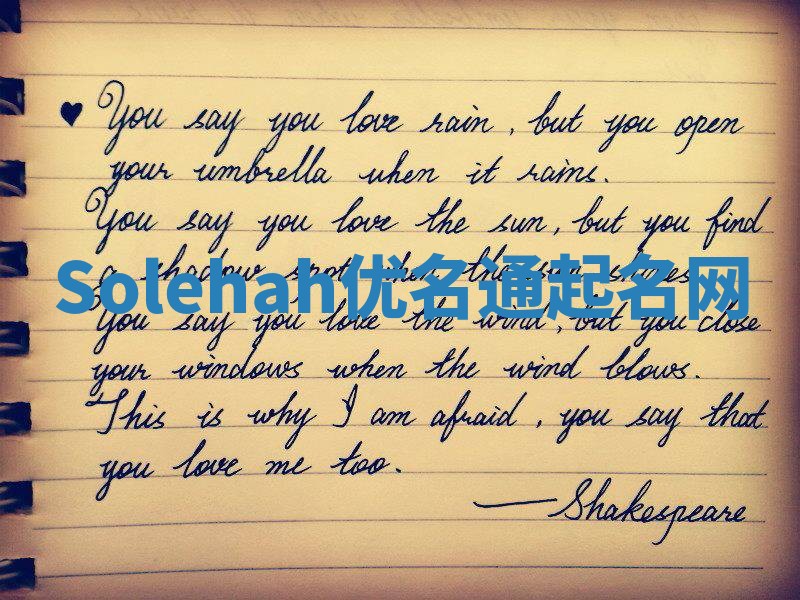 ♥ You say you love rain, but you open
your umbrella when it rains.
You say you love the sun, but you find
a shadow spot when the sun shines.
Solehah优名通起名网
You say you love the wind, but you close
your windows when the wind blows.
This is why I am afraid, you say that
you love me too.
— Shakespeare